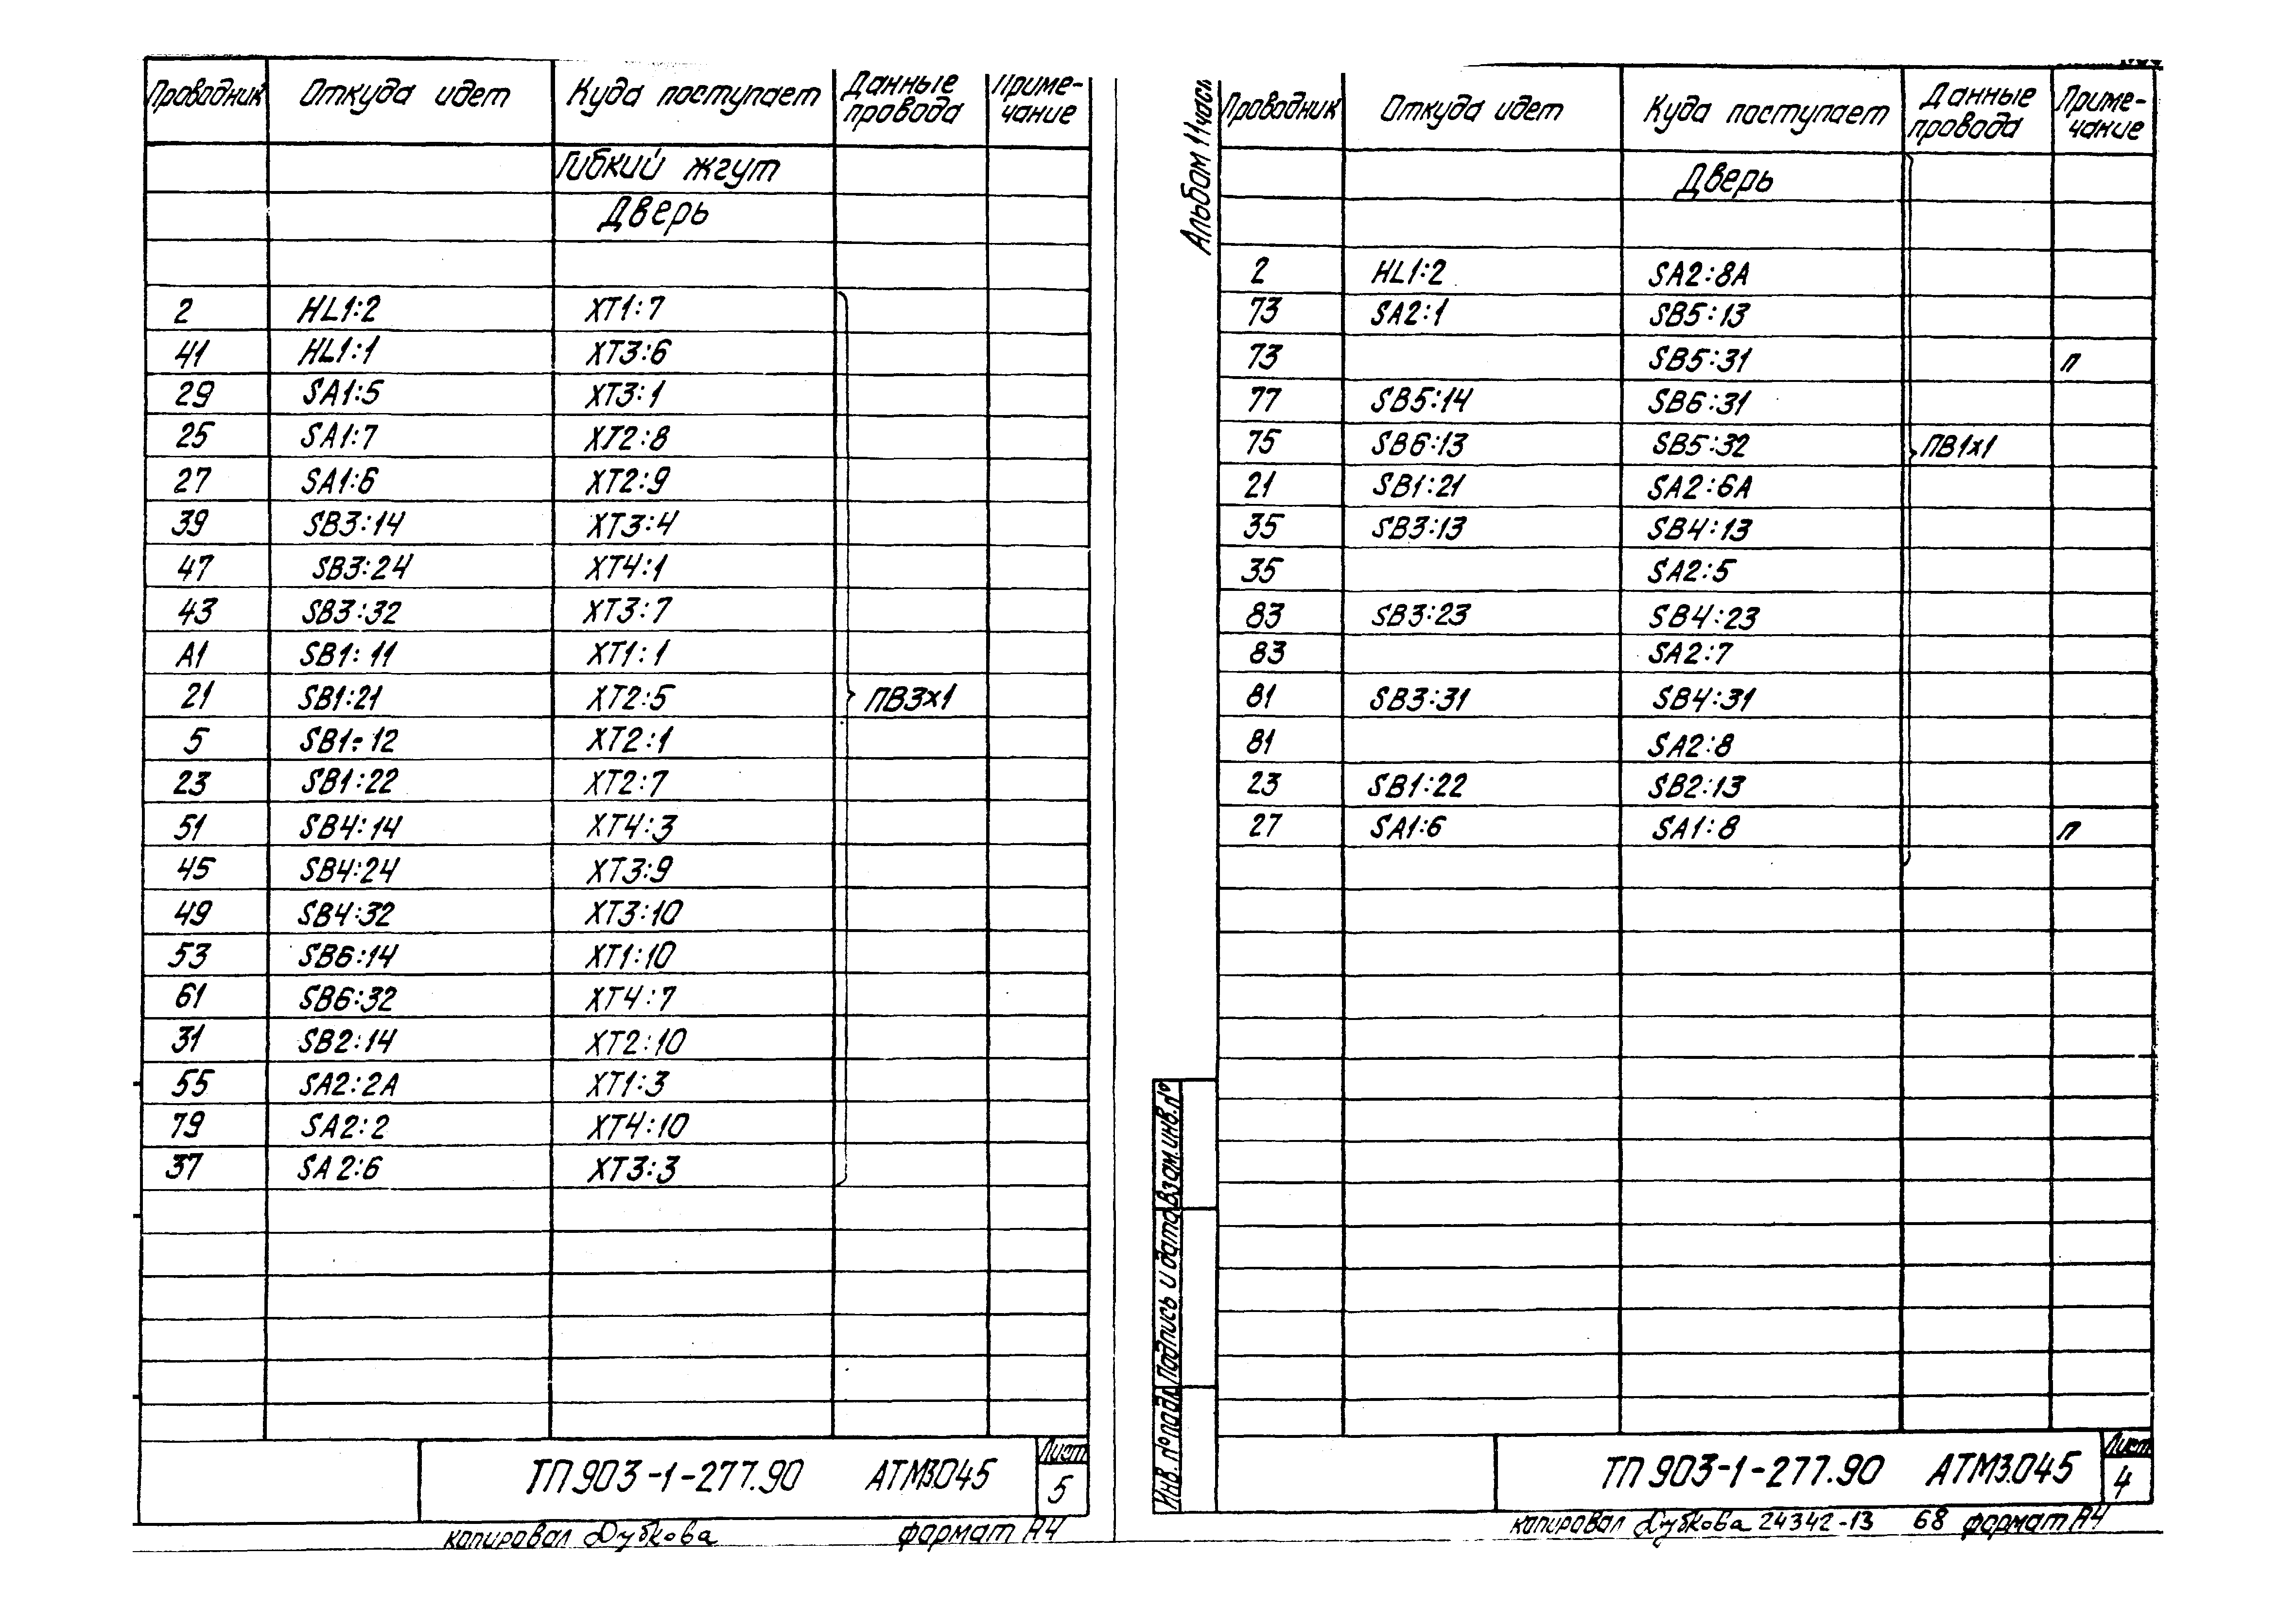 Проводник Откуда идет Куда поступает Данные провода Приме-чание
Гибкий жгут
Дверь
2 HL1:2 XT1:7
41 HL1:1 XT3:6
29 SA1:5 XT3:1
25 SA1:7 XT2:8
27 SA1:6 XT2:9
39 SB3:14 XT3:4
47 SB3:24 XT4:1
43 SB3:32 XT3:7
A1 SB1:11 XT1:1
21 SB1:21 XT2:5 ПВ3х1
5 SB1:12 XT2:1
23 SB1:22 XT2:7
51 SB4:14 XT4:3
45 SB4:24 XT3:9
49 SB4:32 XT3:10
53 SB6:14 XT1:10
61 SB6:32 XT4:7
31 SB2:14 XT2:10
55 SA2:2A XT1:3
79 SA2:2 XT4:10
37 SA2:6 XT3:3
ТП 903-1-277.90 АТМ3.045 Лист
5
копировал Дубкова формат А4
Альбом 11 часть
Проводник Откуда идет Куда поступает Данные провода Приме-чание
Дверь
2 HL1:2 SA2:8A
73 SA2:1 SB5:13
73 SB5:31 п
77 SB5:14 SB6:31
75 SB6:13 SB5:32 ПВ1х1
21 SB1:21 SA2:6A
35 SB3:13 SB4:13
35 SA2:5
83 SB3:23 SB4:23
83 SA2:7
81 SB3:31 SB4:31
81 SA2:8
23 SB1:22 SB2:13
27 SA1:6 SA1:8 п
Инв. № подл. Подпись и дата Взам.инв.№
ТП 903-1-277.90 АТМ3.045 Лист
4
копировал Дубкова 24342-13 68 формат А4